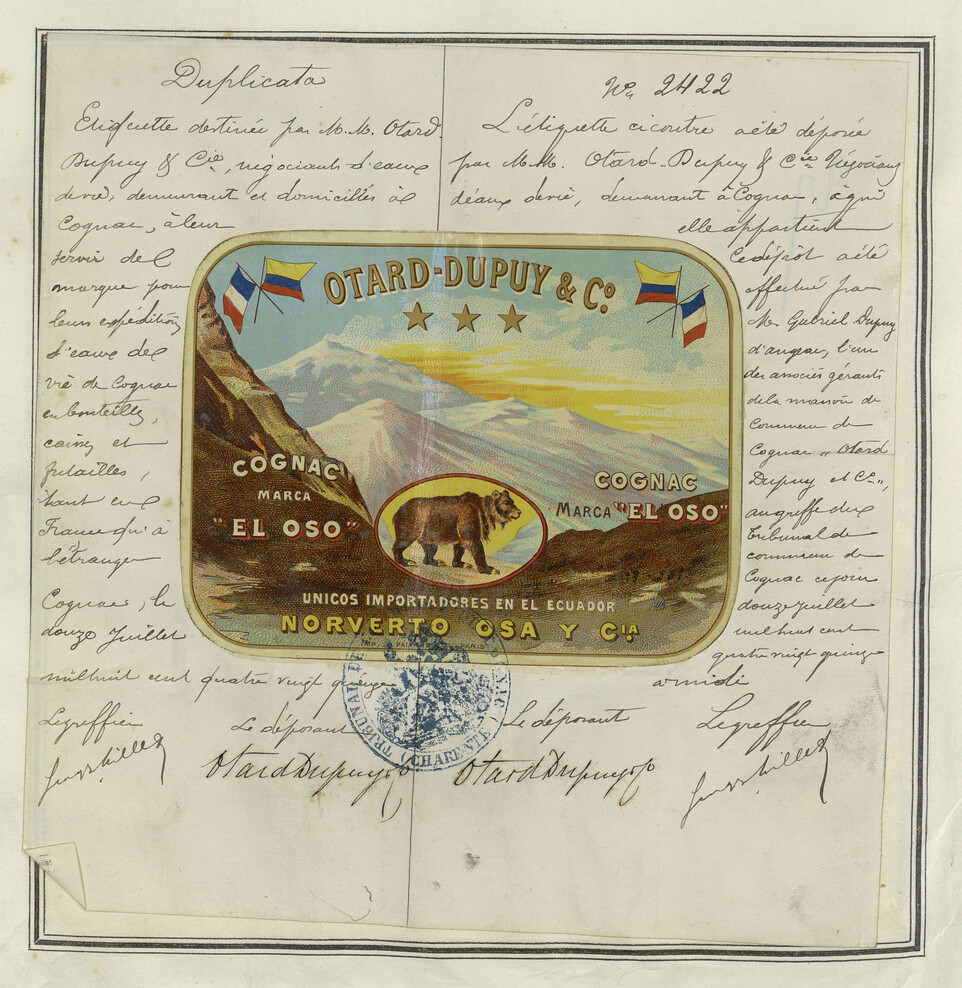 Duplicata
Etiquette destinée par M.M. Otard.
Dupuy & Cie, négociants d'eaux
de vie, demeurant et domiciliés à
Cognac, à leur
servir de
marque pour
leurs expéditions
d'eaux de
vie de Cognac
en bouteilles,
caisses et
futailles,
tant en
France qu'à
l'étranger
Cognac, le
douze Juillet
mil huit cent quatre vingt quinze
Le greffier
Le déposant
Otard Dupuy & Co
No 2422
L'étiquette ci contre a été déposée
par M.M. Otard-Dupuy & Cie Négociants
d'eaux de vie, demeurant à Cognac, à qui
elle appartient
Ce dépôt a été
effectué par
M. Gabriel Dupuy
d'angeac, l'un
des associés gérants
de la maison de
Commerce de
Cognac "Otard
Dupuy et Cie",
au greffe du
tribunal de
commerce de
Cognac ce jour
douze juillet
mil huit cent
quatre vingt quinze
a midi
Le déposant
Le greffier
Otard Dupuy & Co
OTARD-DUPUY & Co.
COGNAC
MARCA
"EL OSO"
COGNAC
MARCA "EL OSO"
UNICOS IMPORTADORES EN EL ECUADOR
NORVERTO OSA Y CIA
TRIBUNAL
(CHARENTE)